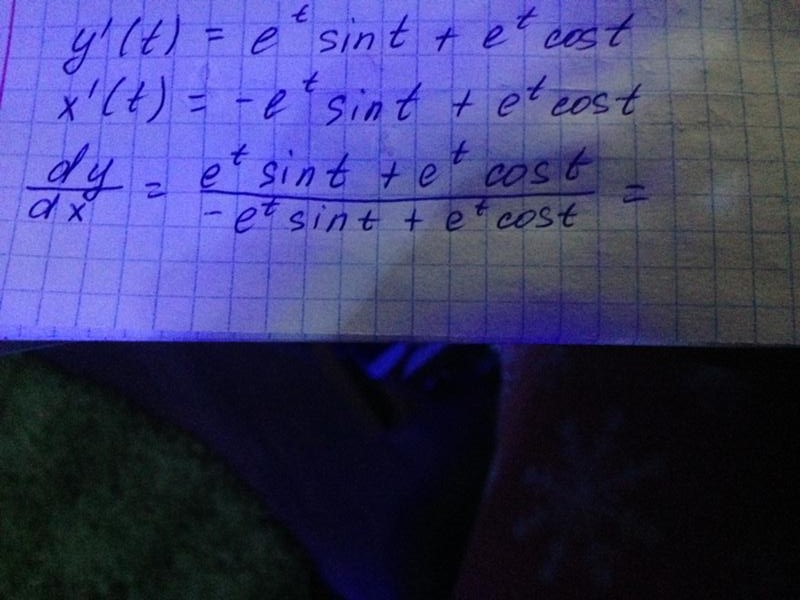 y'(t) = e^t sin t + e^t cos t
x'(t) = -e^t sin t + e^t cos t
dy/dx = (e^t sin t + e^t cos t)/(-e^t sin t + e^t cos t) =